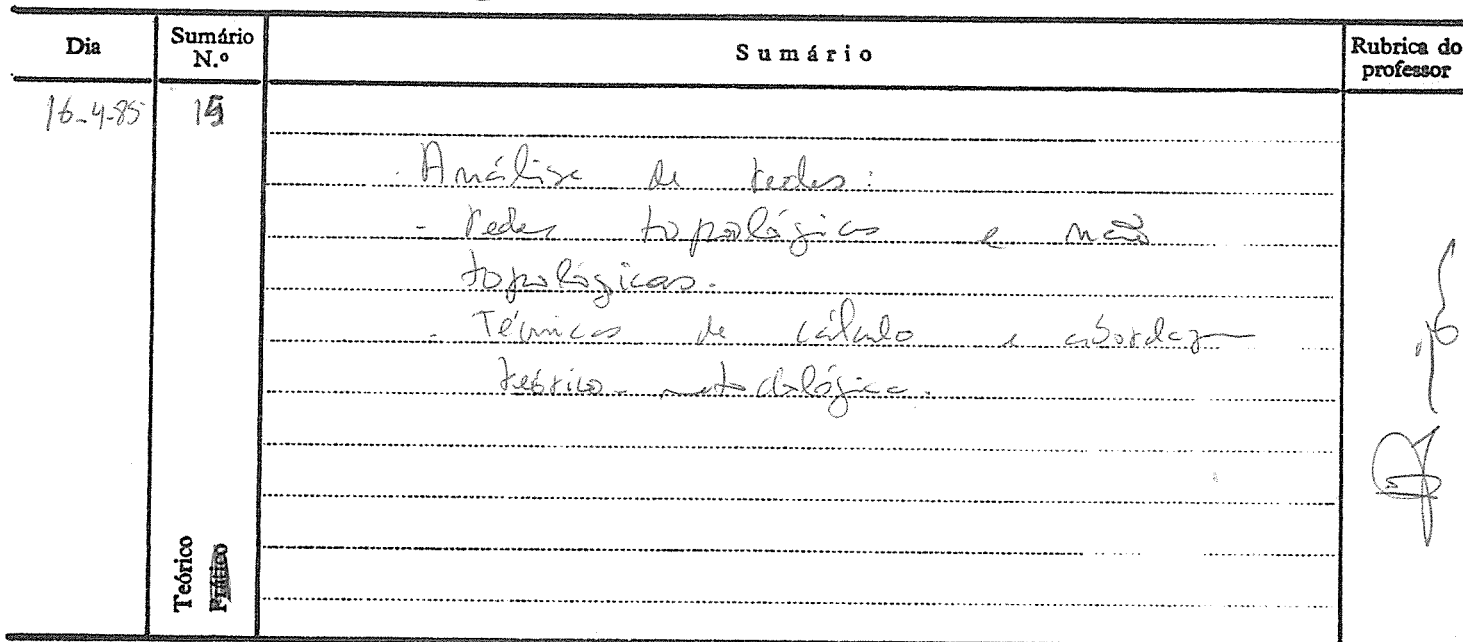 Dia Sumário N.º Sumário Rubrica do professor
16-4-85 15
Análise de redes:
- redes topológicas e não
topológicas.
- Técnicas de cálculo e abordagem
teórico-metodológica.
Teórico
Prático